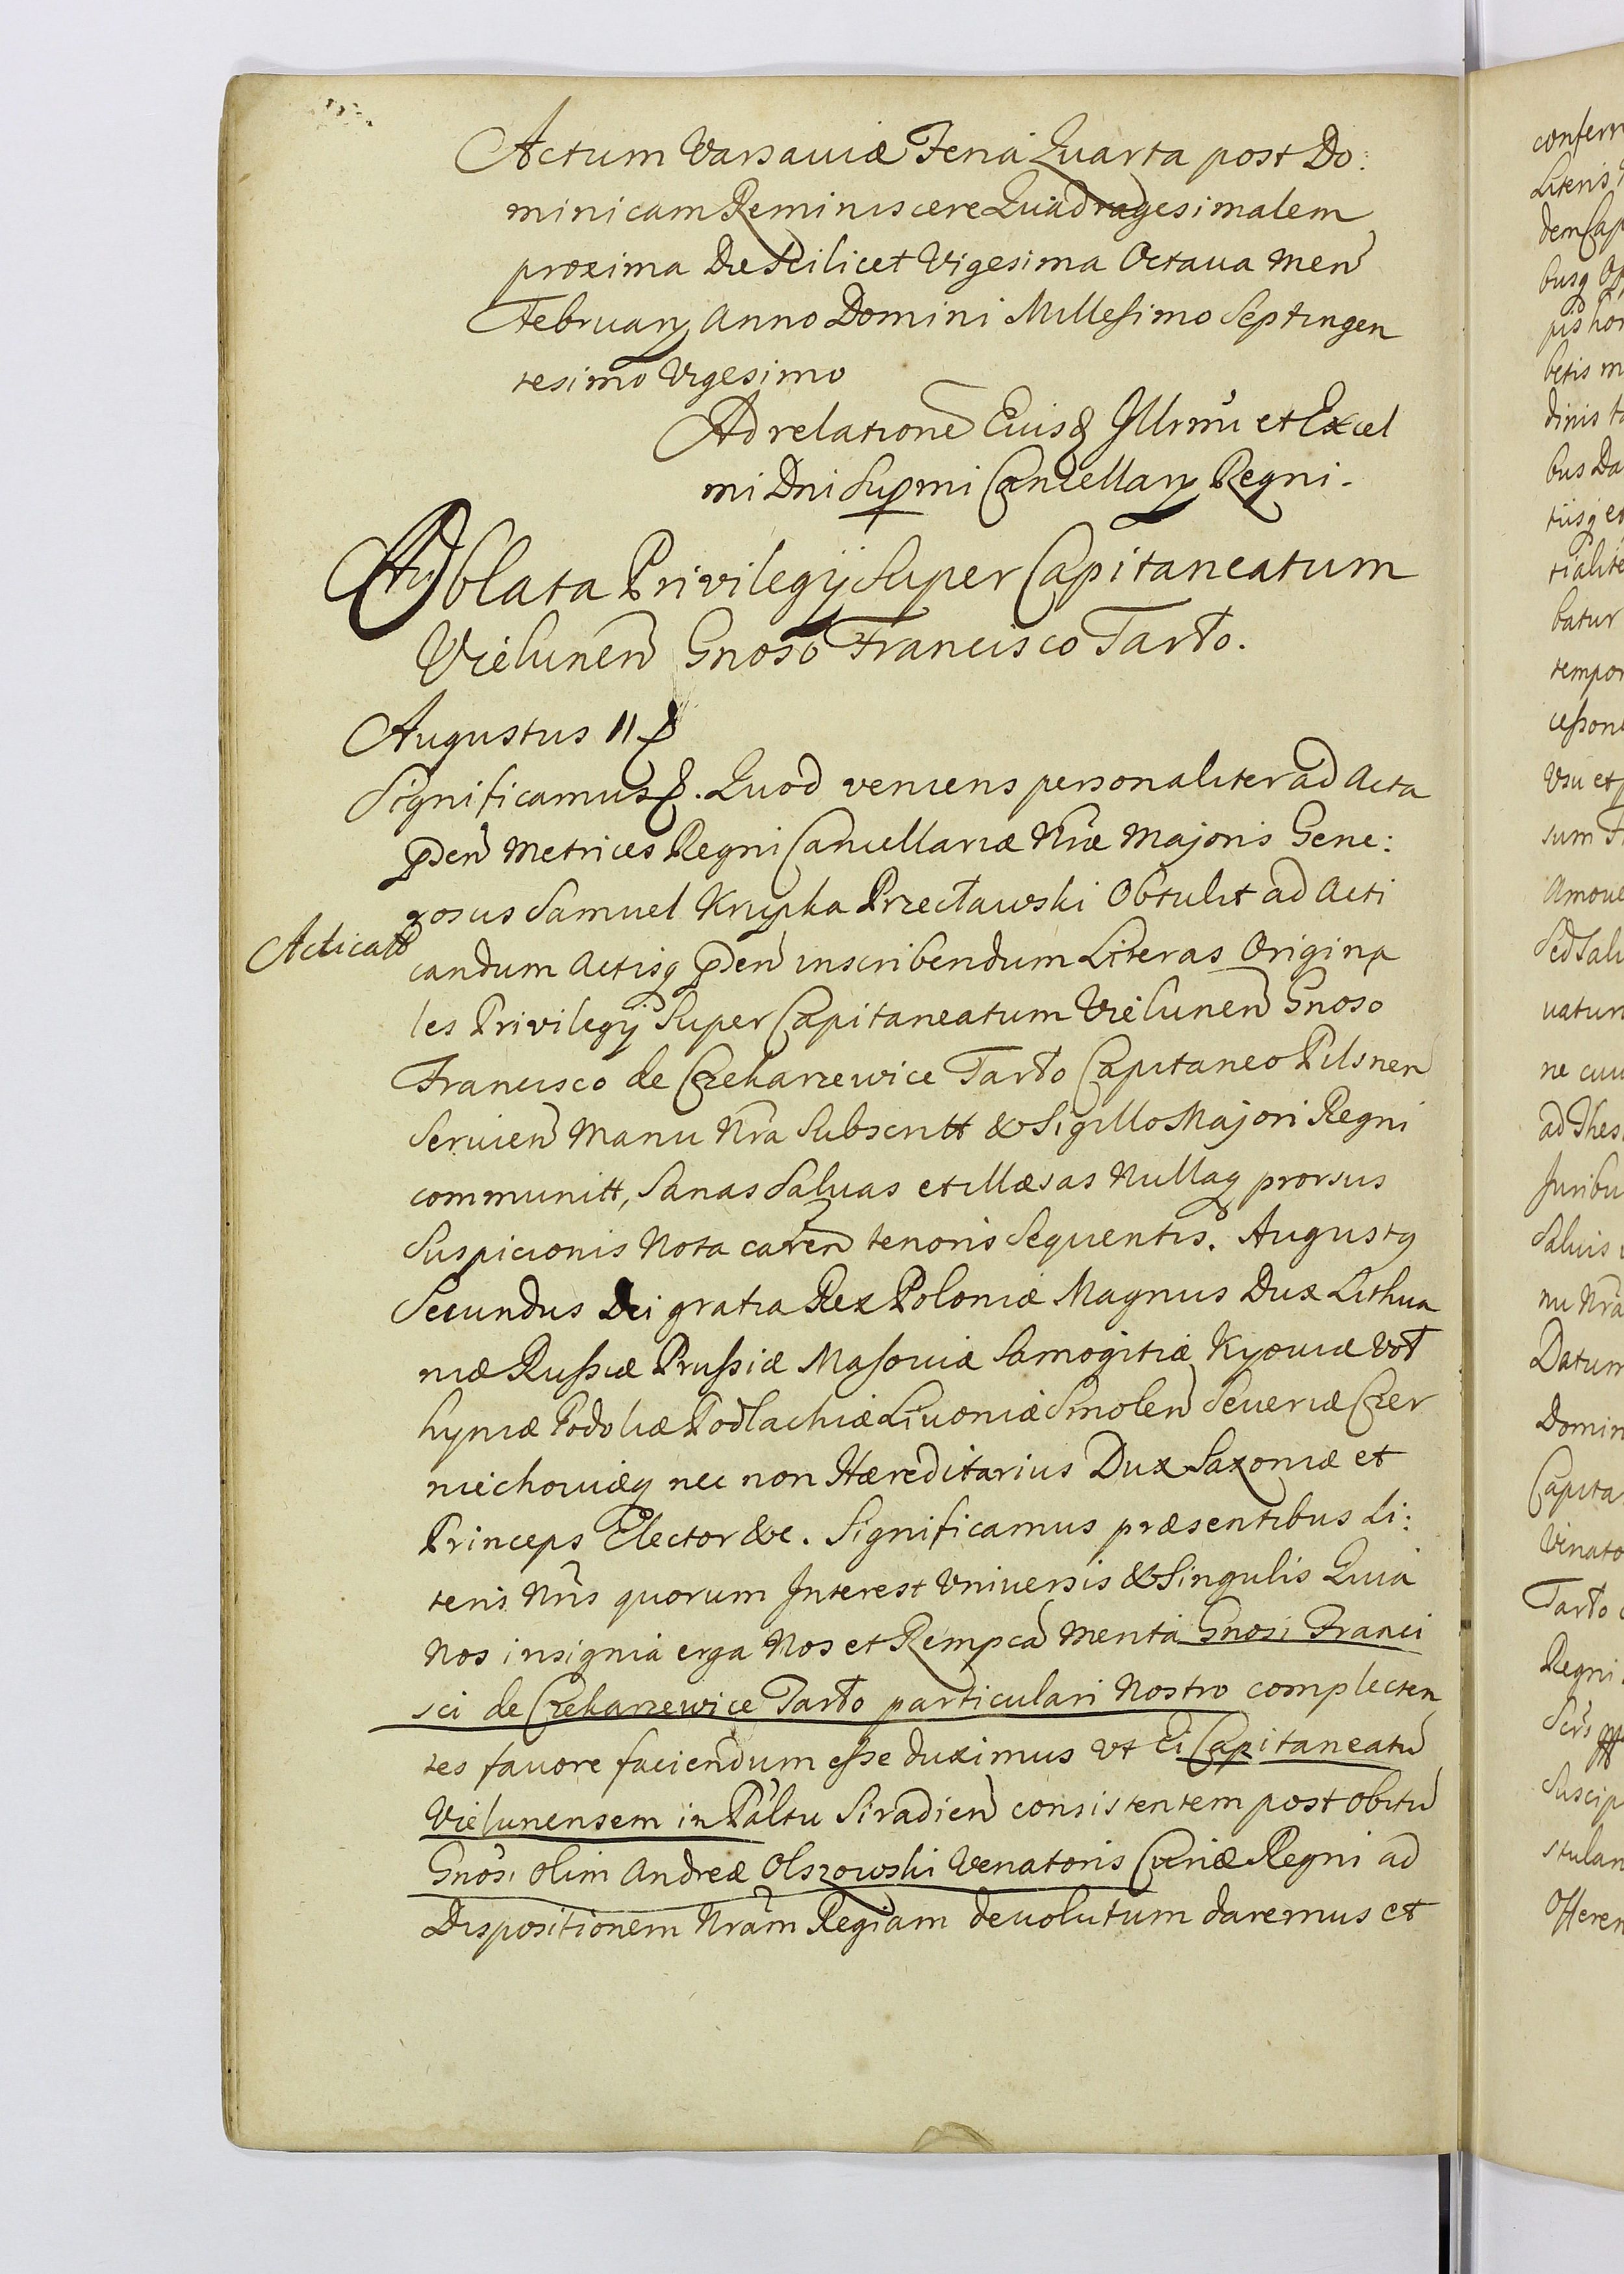 Actum Varsaviæ Feria Quarta post Do:
minicam Reminiscere Quadragesimalem
proxima Die scilicet Vigesima Octava Men
Februarÿ Anno Domini Millesimo Septingen
tesimo Vigesimo
Ad relatione Eiusd Illrmi et Excel
mi Dni Supmi Cancellarÿ Regni.
Oblata Privilegÿ Super Capitaneatum
Vielunen Gnoso Francisco Tarło.
Augustus II
Significamus. Quod veniens personaliter ad Acta
pden Metrices Regni Cancellariæ Nræ Majoris Gene:
rosus Samuel Krupka Przecławski Obtulit ad Acti
Acticatt
candum Actisq pden inscribendum Literas Origina
les Privilegÿ Super Capitaneatum Vielunen Gnoso
Francisco de Czekarzewice Tarło Capitaneo Pilsnen
Servien Manu Nra Subscritt & Sigillo Majori Regni
communitt, Sanas Salvas et illæsas Nullaq prorsus
Suspicionis Nota caren tenoris Sequentis. Augustq
Secundus Dei gratia Rex Poloniæ Magnus Dux Lithua
niæ Russiæ Prussiæ Masoviæ Samogitiæ Kyoviæ Voł
hyniæ Podoliæ Podlachiæ Livoniæ Smolen Severiæ Czer
niechoviæq nec non Hæreditarius Dux Saxoniæ et
Princeps Elector &c. Significamus præsentibus Li:
teris Nris quorum Interest Universis & Singulis Quia
Nos insignia erga Nos et Rempca merita Gnosi Franci
sci de Czekarzewice Tarło particulari Nostro complecten
tes favore faciendum esse duximus Vt Ei Capitaneatu
Vielunensem in Păltu Siradien consistentem post obitu
Gnosi olim Andreæ Olszowski Venatoris Curiæ Regni ad
Dispositionem Nram Regiam devolutum daremus et
conferr
Literis
dem Cap
betis m
bus Da
batur
tempor
Vsu et p
sum
Amove
Sed Salv
vatur
ne cui
ad Thes
Juribu
Salvis
nu Nra
Datum
Domin
Capita
Venato
Tarło
Regni
Suscip
stulan
Offeren